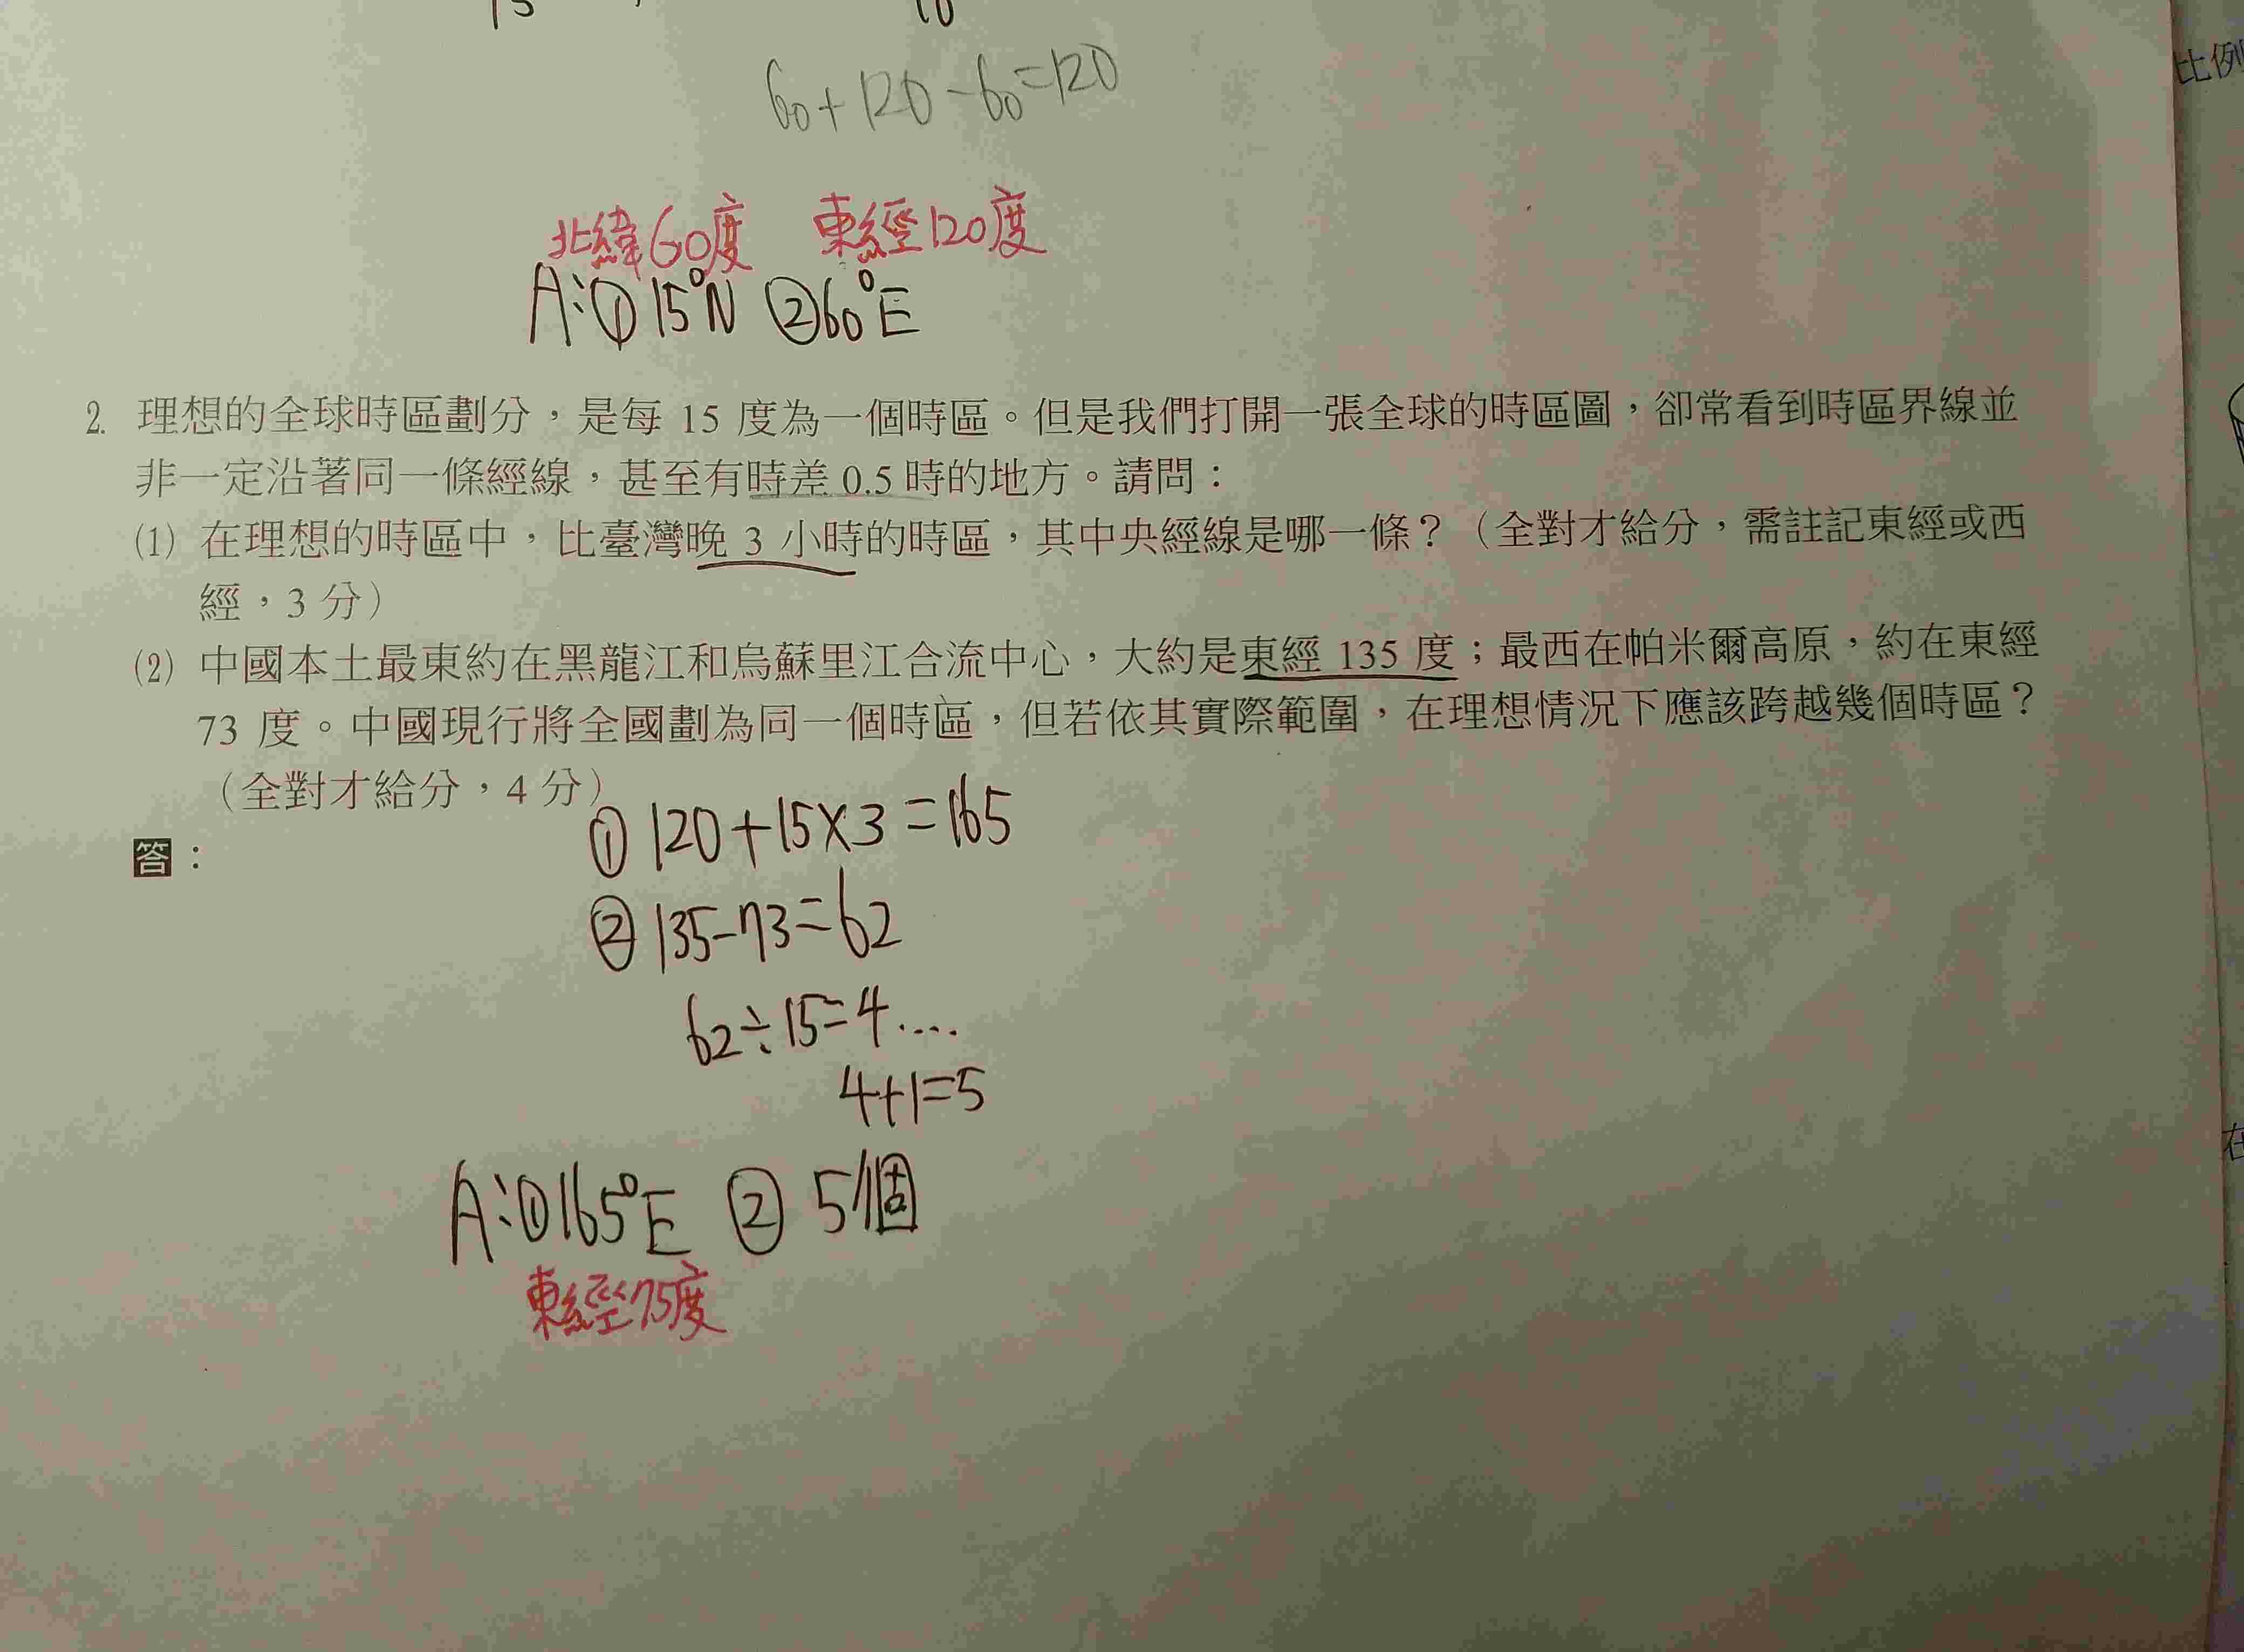 15
10
60+120-60=120
比例
北緯60度 東經120度
A:①15°N ②60°E
2. 理想的全球時區劃分，是每 15 度為一個時區。但是我們打開一張全球的時區圖，卻常看到時區界線並
非一定沿著同一條經線，甚至有時差 0.5 時的地方。請問：
(1) 在理想的時區中，比臺灣晚 3 小時的時區，其中央經線是哪一條？（全對才給分，需註記東經或西
經，3 分）
(2) 中國本土最東約在黑龍江和烏蘇里江合流中心，大約是東經 135 度；最西在帕米爾高原，約在東經
73 度。中國現行將全國劃為同一個時區，但若依其實際範圍，在理想情況下應該跨越幾個時區？
（全對才給分，4 分）
答：
①120+15×3=165
②135-73=62
62÷15=4....
4+1=5
A:①165°E ② 5個
東經75度
在